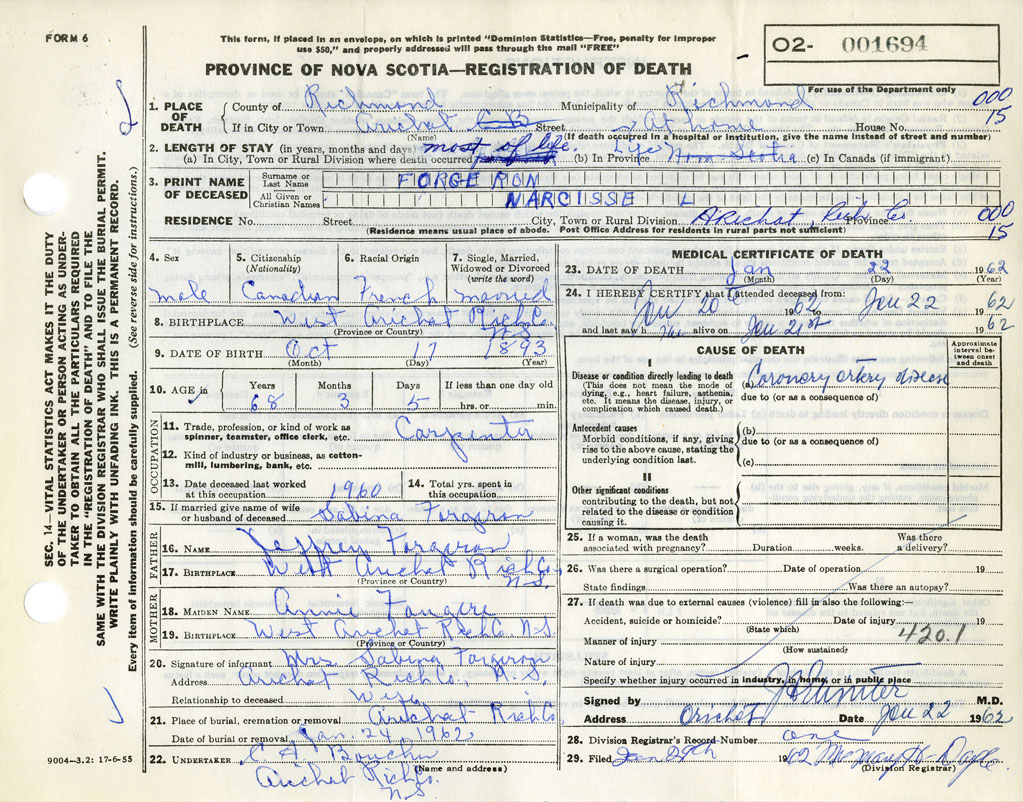 FORM 6
This form, if placed in an envelope, on which is printed "Dominion Statistics—Free, penalty for improper
use $50," and properly addressed will pass through the mail "FREE"
O2- 001694
PROVINCE OF NOVA SCOTIA—REGISTRATION OF DEATH
For use of the Department only
1. PLACE OF DEATH { County of Richmond Municipality of Richmond 000
If in City or Town Arichat C B Street At home House No. 15
(Name) (If death occurred in a hospital or institution, give the name instead of street and number)
2. LENGTH OF STAY (in years, months and days) most of life. Life
(a) In City, Town or Rural Division where death occurred (b) In Province Nova Scotia (c) In Canada (if immigrant)
3. PRINT NAME OF DECEASED { Surname or Last Name FORGERON
All Given or Christian Names NARCISSE L
RESIDENCE No. Street City, Town or Rural Division ARichat, Rich Co. Province 000
(Residence means usual place of abode. Post Office Address for residents in rural parts not sufficient) 15
4. Sex male
5. Citizenship (Nationality) Canadian
6. Racial Origin French
7. Single, Married, Widowed or Divorced (write the word) married
8. BIRTHPLACE West Arichat Rich Co. N.S.
(Province or Country)
9. DATE OF BIRTH Oct 17 1893
(Month) (Day) (Year)
10. AGE in Years 68 Months 3 Days 5 If less than one day old hrs. or min.
OCCUPATION
11. Trade, profession, or kind of work as spinner, teamster, office clerk, etc. Carpenter
12. Kind of industry or business, as cotton-mill, lumbering, bank, etc.
13. Date deceased last worked at this occupation 1960 14. Total yrs. spent in this occupation
15. If married give name of wife or husband of deceased Sabina Forgeron
FATHER
16. NAME Jeffrey Forgeron
17. BIRTHPLACE West Arichat Rich Co. N.S.
(Province or Country)
MOTHER
18. MAIDEN NAME Annie
19. BIRTHPLACE West Arichat Rich Co N.S.
(Province or Country)
20. Signature of informant Mrs Sabina Forgeron
Address Arichat Rich Co., N.S.
Relationship to deceased Wife
21. Place of burial, cremation or removal Arichat - Rich Co,
Date of burial or removal Jan. 24, 1962
22. UNDERTAKER C A
Arichat Rich Co.
(Name and address)
N.S.
9004—3.2: 17-6-55
MEDICAL CERTIFICATE OF DEATH
23. DATE OF DEATH Jan 22 1962
(Month) (Day) (Year)
24. I HEREBY CERTIFY that I attended deceased from:
Jan 20th 1962 to Jan 22 1962
and last saw h im alive on Jan 21st 1962
CAUSE OF DEATH
Approximate interval between onset and death
I
Disease or condition directly leading to death (a) Coronary artery disease
(This does not mean the mode of dying, e.g., heart failure, asthenia, etc. It means the disease, injury, or complication which caused death.)
due to (or as a consequence of)
Antecedent causes
Morbid conditions, if any, giving rise to the above cause, stating the underlying condition last.
(b)
due to (or as a consequence of)
(c)
II
Other significant conditions
contributing to the death, but not related to the disease or condition causing it.
25. If a woman, was the death associated with pregnancy? Duration weeks. Was there a delivery?
26. Was there a surgical operation? Date of operation 19
State findings Was there an autopsy?
27. If death was due to external causes (violence) fill in also the following:—
Accident, suicide or homicide? Date of injury 19
(State which)
Manner of injury 420.1
(How sustained)
Nature of injury
Specify whether injury occurred in industry, in home, or in public place
Signed by M.D.
Address Arichat Date Jan 22 1962
28. Division Registrar's Record Number one
29. Filed Jan 29th 1962
(Division Registrar)
SEC. 14—VITAL STATISTICS ACT MAKES IT THE DUTY
OF THE UNDERTAKER OR PERSON ACTING AS UNDER-
TAKER TO OBTAIN ALL THE PARTICULARS REQUIRED
IN THE "REGISTRATION OF DEATH" AND TO FILE THE
SAME WITH THE DIVISION REGISTRAR WHO SHALL ISSUE THE BURIAL PERMIT.
WRITE PLAINLY WITH UNFADING INK. THIS IS A PERMANENT RECORD.
Every item of information should be carefully supplied. (See reverse side for instructions.)